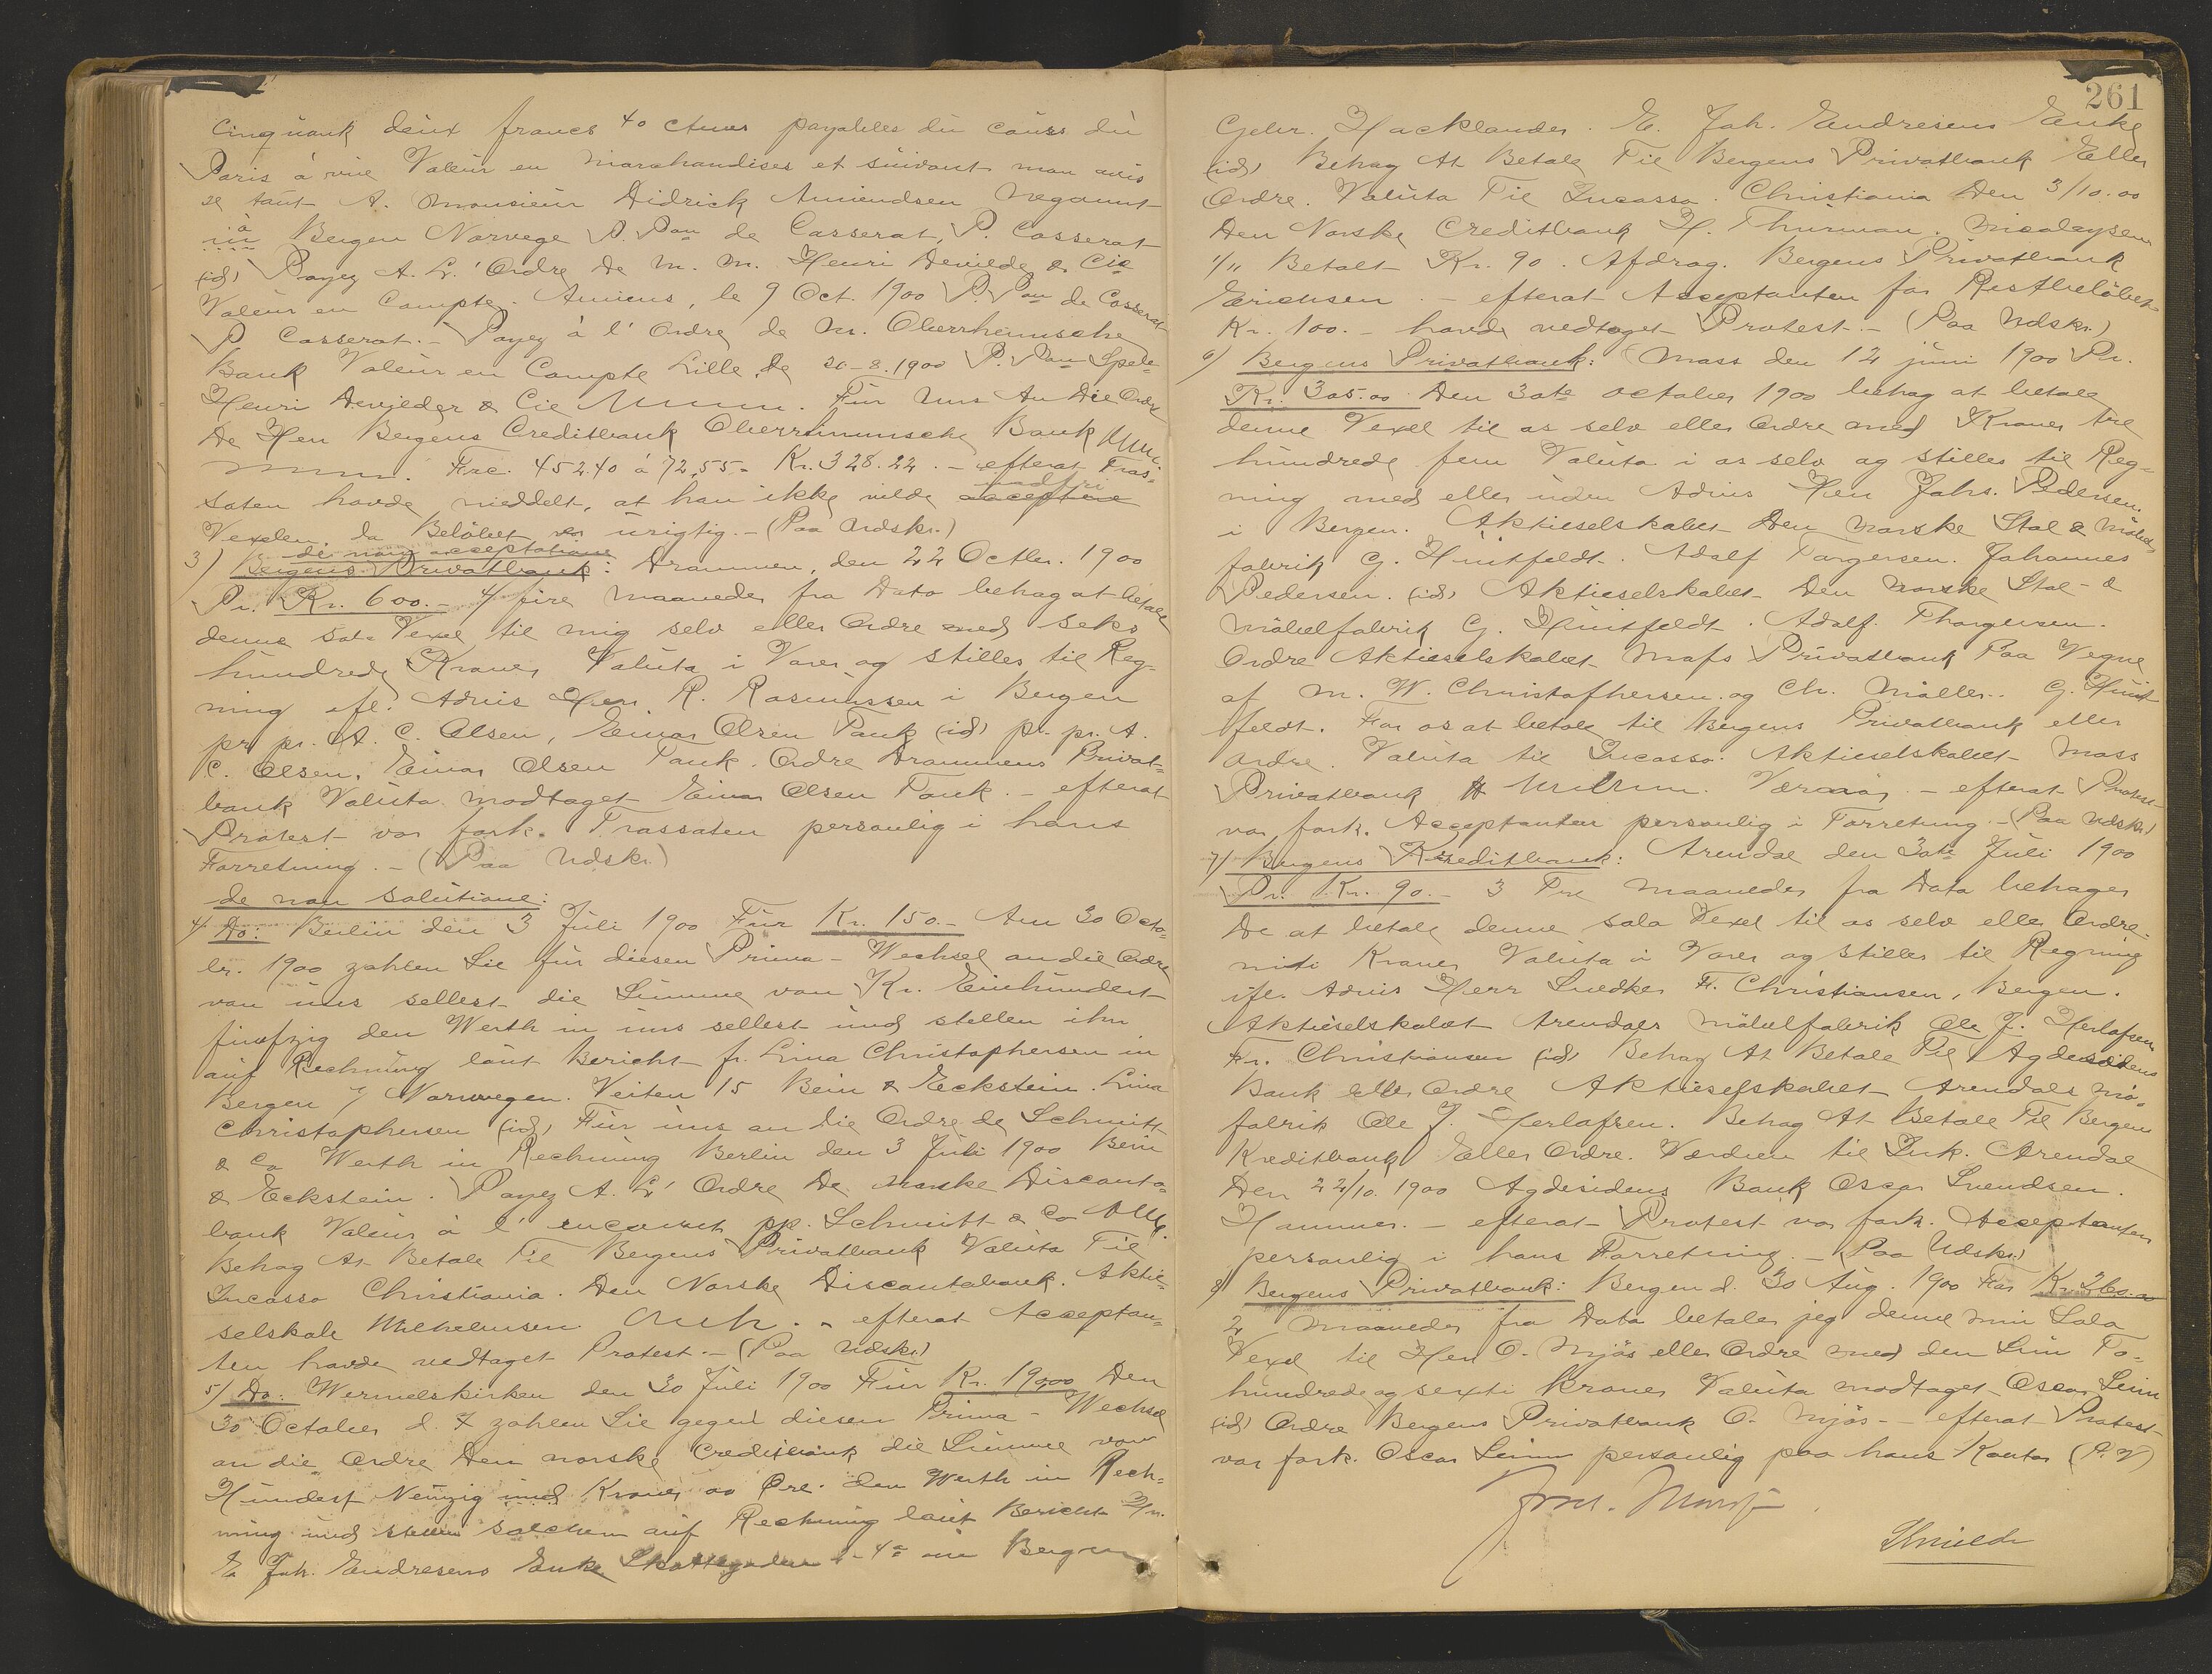 Cinquank deux francs 40 ctmes payables du cours du
Paris à vue Valeur en marchandises et suivant mon avis
A. Monsieur Didrick Amundsen Negount
à Bergen Norvege P. Pon de Casserat, P. Casserat
(id) Payez A. L.' Ordre De M. M. Henri Devilder & Cie
Valeur en Compte. Amiens, le 9 Oct. 1900 P. Pon de Casserat
P Casserat. - Payez à l' Ordre de M. Oberrheinische
Bank Valeur en Compte Lille, De 20-8.1900 P. Pon
Henri Devilder & Cie. Für uns An Die Ordre
De Herr Bergens Creditbank Oberrheinische Bank
Frc. 452.40 à 72,55 = Kr. 328.22. - efterat Tras-
saten havde meddelt, at han ikke vilde acceptere indfri
Vexelen, da Beløbet er urigtig. - (Paa Udskr.)
de non acceptatione
3) Bergens Privatbank: Drammen, den 22 Octbr. 1900
Pr. Kr. 600.- 4/ fire Maaneder fra Dato behag at betale
denne Sola Vexel til mig selv eller Ordre med seks
hundrede Kroner Valuta i Varer og stilles til Reg-
ning ifl. Advis Herr R. Rasmussen i Bergen
pr. pr. A. C. Olsen, Einar Olsen Tank (id) pr. pr. A.
C. Olsen, Einar Olsen Tank. Ordre Drammens Privat-
bank Valuta modtaget Einar Olsen Tank. - efterat
Protest var fork. Trassaten personlig i hans
Forretning. - (Paa Udskr.)
de non solutione:
4) Do: Berlin den 3 Juli 1900 Für Kr. 150.- Am 30 Octo-
br. 1900 zahlen Sie für diesen Prima-Wechsel an die Ordre
von uns selbst die Summe von Kr. Einhundert
fünfzig den Werth in uns selbst und stellen ihn
auf Rechnung laut Bericht fr. Lina Christophersen in
Bergen / Norwegen. Veiten 15 Bein & Eckstein. Lina
Christophersen (id) Für uns an die Ordre de Schmitt
& Co Werth in Rechnung Berlin den 3 Juli 1900 Bein
& Eckstein. Payez A. L' Ordre De norske Disconto-
bank Valeur à l' encaissent pp. Schmitt & Co
Behag At Betale Til Bergens Privatbank Valuta Til
Incasso Christiania. Den Norske Discontobank. Aktie-
selskab Wilhelmsen. - efterat Acceptan-
ten havde nedtaget Protest. - (Paa Udskr.)
5) Do: Wermelskirken den 30 Juli 1900 Für Kr. 190,00 Den
30 October d. J. zahlen Sie gegen diesen Prima-Wechsel
an die Ordre Den norske Creditbank die Summe von
Hundert Neunzig und Kroner 00 Øre. den Werth in Rech-
nung und stellen solchen auf Rechnung laut Bericht Hr.
E Joh. Endresens Enke Skottegaden in Bergen
261
Gebr. Hacklander. E. Joh. Endresens Enke
(id) Behag At Betale Til Bergens Privatbank Eller
Ordre. Valuta Til Incasso. Christiania Den 3/10.00
Den Norske Creditbank H. Thurman. Nicolaysen
1/11 Betalt Kr. 90. Afdrag. Bergens Privatbank
Erichsen. - efterat Acceptanten for Restbeløbet
Kr. 100.- havde nedtaget Protest. - (Paa Udskr.)
6) Bergens Privatbank: Moss den 12 juni 1900 Pr.
Kr. 305.00 Den 30te october 1900 behag at betale
denne Vexel til os selv eller Ordre med Kroner tre
hundrede fem Valuta i os selv og stilles til Reg-
ning med eller uden Advis Herr Johs. Pedersen,
i Bergen. Aktieselskabet Den norske Stol & Møbel-
fabrik G. Huitfeldt. Adolf Torgersen. Johannes
Pedersen. (id) Aktieselskabet Den norske Stol- &
Møbelfabrik G. Huitfeldt. Adolf. Thorgersen.
Ordre Aktieselskabet Moss Privatbank Paa Vegne
af M. W. Christofhersen og Ch. Møller. G. Huit-
feldt. For os at betale til Bergens Privatbank eller
Ordre. Valuta til Incasso: Aktieselskabet Moss
Privatbank. - efterat Protest
var fork. Acceptanten personlig i Forretning. - (Paa Udskr.)
7) Bergens Kreditbank: Arendal den 30te Juli 1900
Pr. Kr. 90.- 3 Tre Maaneder fra Dato behager
De at betale denne sola Vexel til os selv eller Ordre
nitti Kroner Valuta i Varer og stilles til Regning
ifl. Advis Herr Snedker F. Christiansen, Bergen.
Aktieselskabet Arendals Møbelfabrik Ole J. Herlofsen
Fr. Christiansen (id) Behag At Betale Til Agdesidens
Bank eller Ordre Aktieselskabet Arendals Mø-
fabrik Ole J. Herlofsen. Behag At Betale Til Bergens
Kreditbank Eller Ordre. Værdien til Ink. Arendal
Den 22/10. 1900 Agdesidens Bank Oscar Svendsen.
Hammer. - efterat Protest var fork. Acceptanten
personlig i hans Forretning. - (Paa Udskr.)
8) Bergens Privatbank: Bergen d. 30 Aug. 1900 For Kr. 260.00
2 Maaneder fra Dato betaler jeg denne min Sola
Vexel til Herr O. Mjøs eller Ordre med den Sum To-
hundrede og sexti Kroner Valuta modtaget Oscar Leim
(id) Ordre Bergens Privatbank O. Mjøs. - efterat Protest
var fork. Oscar Leim personlig paa hans Kontor (P. U)